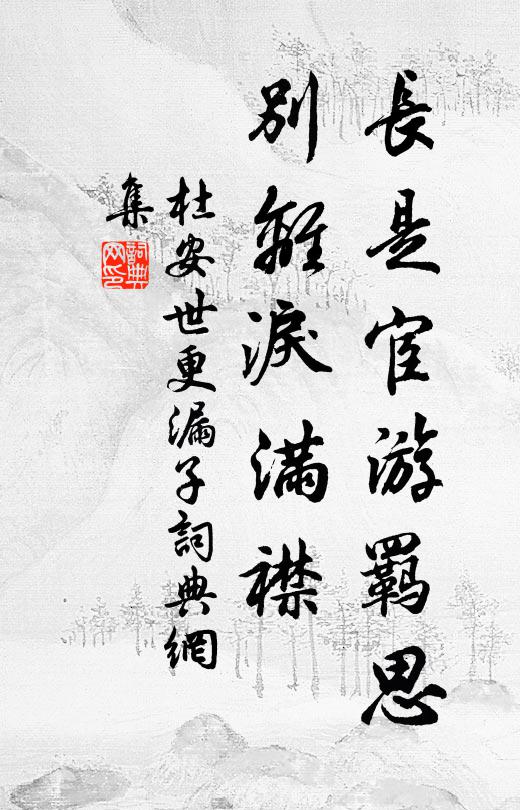 長是宦游羈思
別離淚滿襟
杜安世更漏子詞典網
集
詞典網印